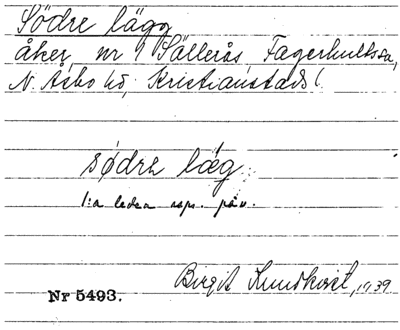 Södre lägg
åker, nr 1 Sällerås, Fagerhults sn,
N. Åsbo hd, Kristianstads l.
södrɐ lǽg
1:a leden rspr. påv.
Birgit Lundkvist, 1939
Nr 5493.